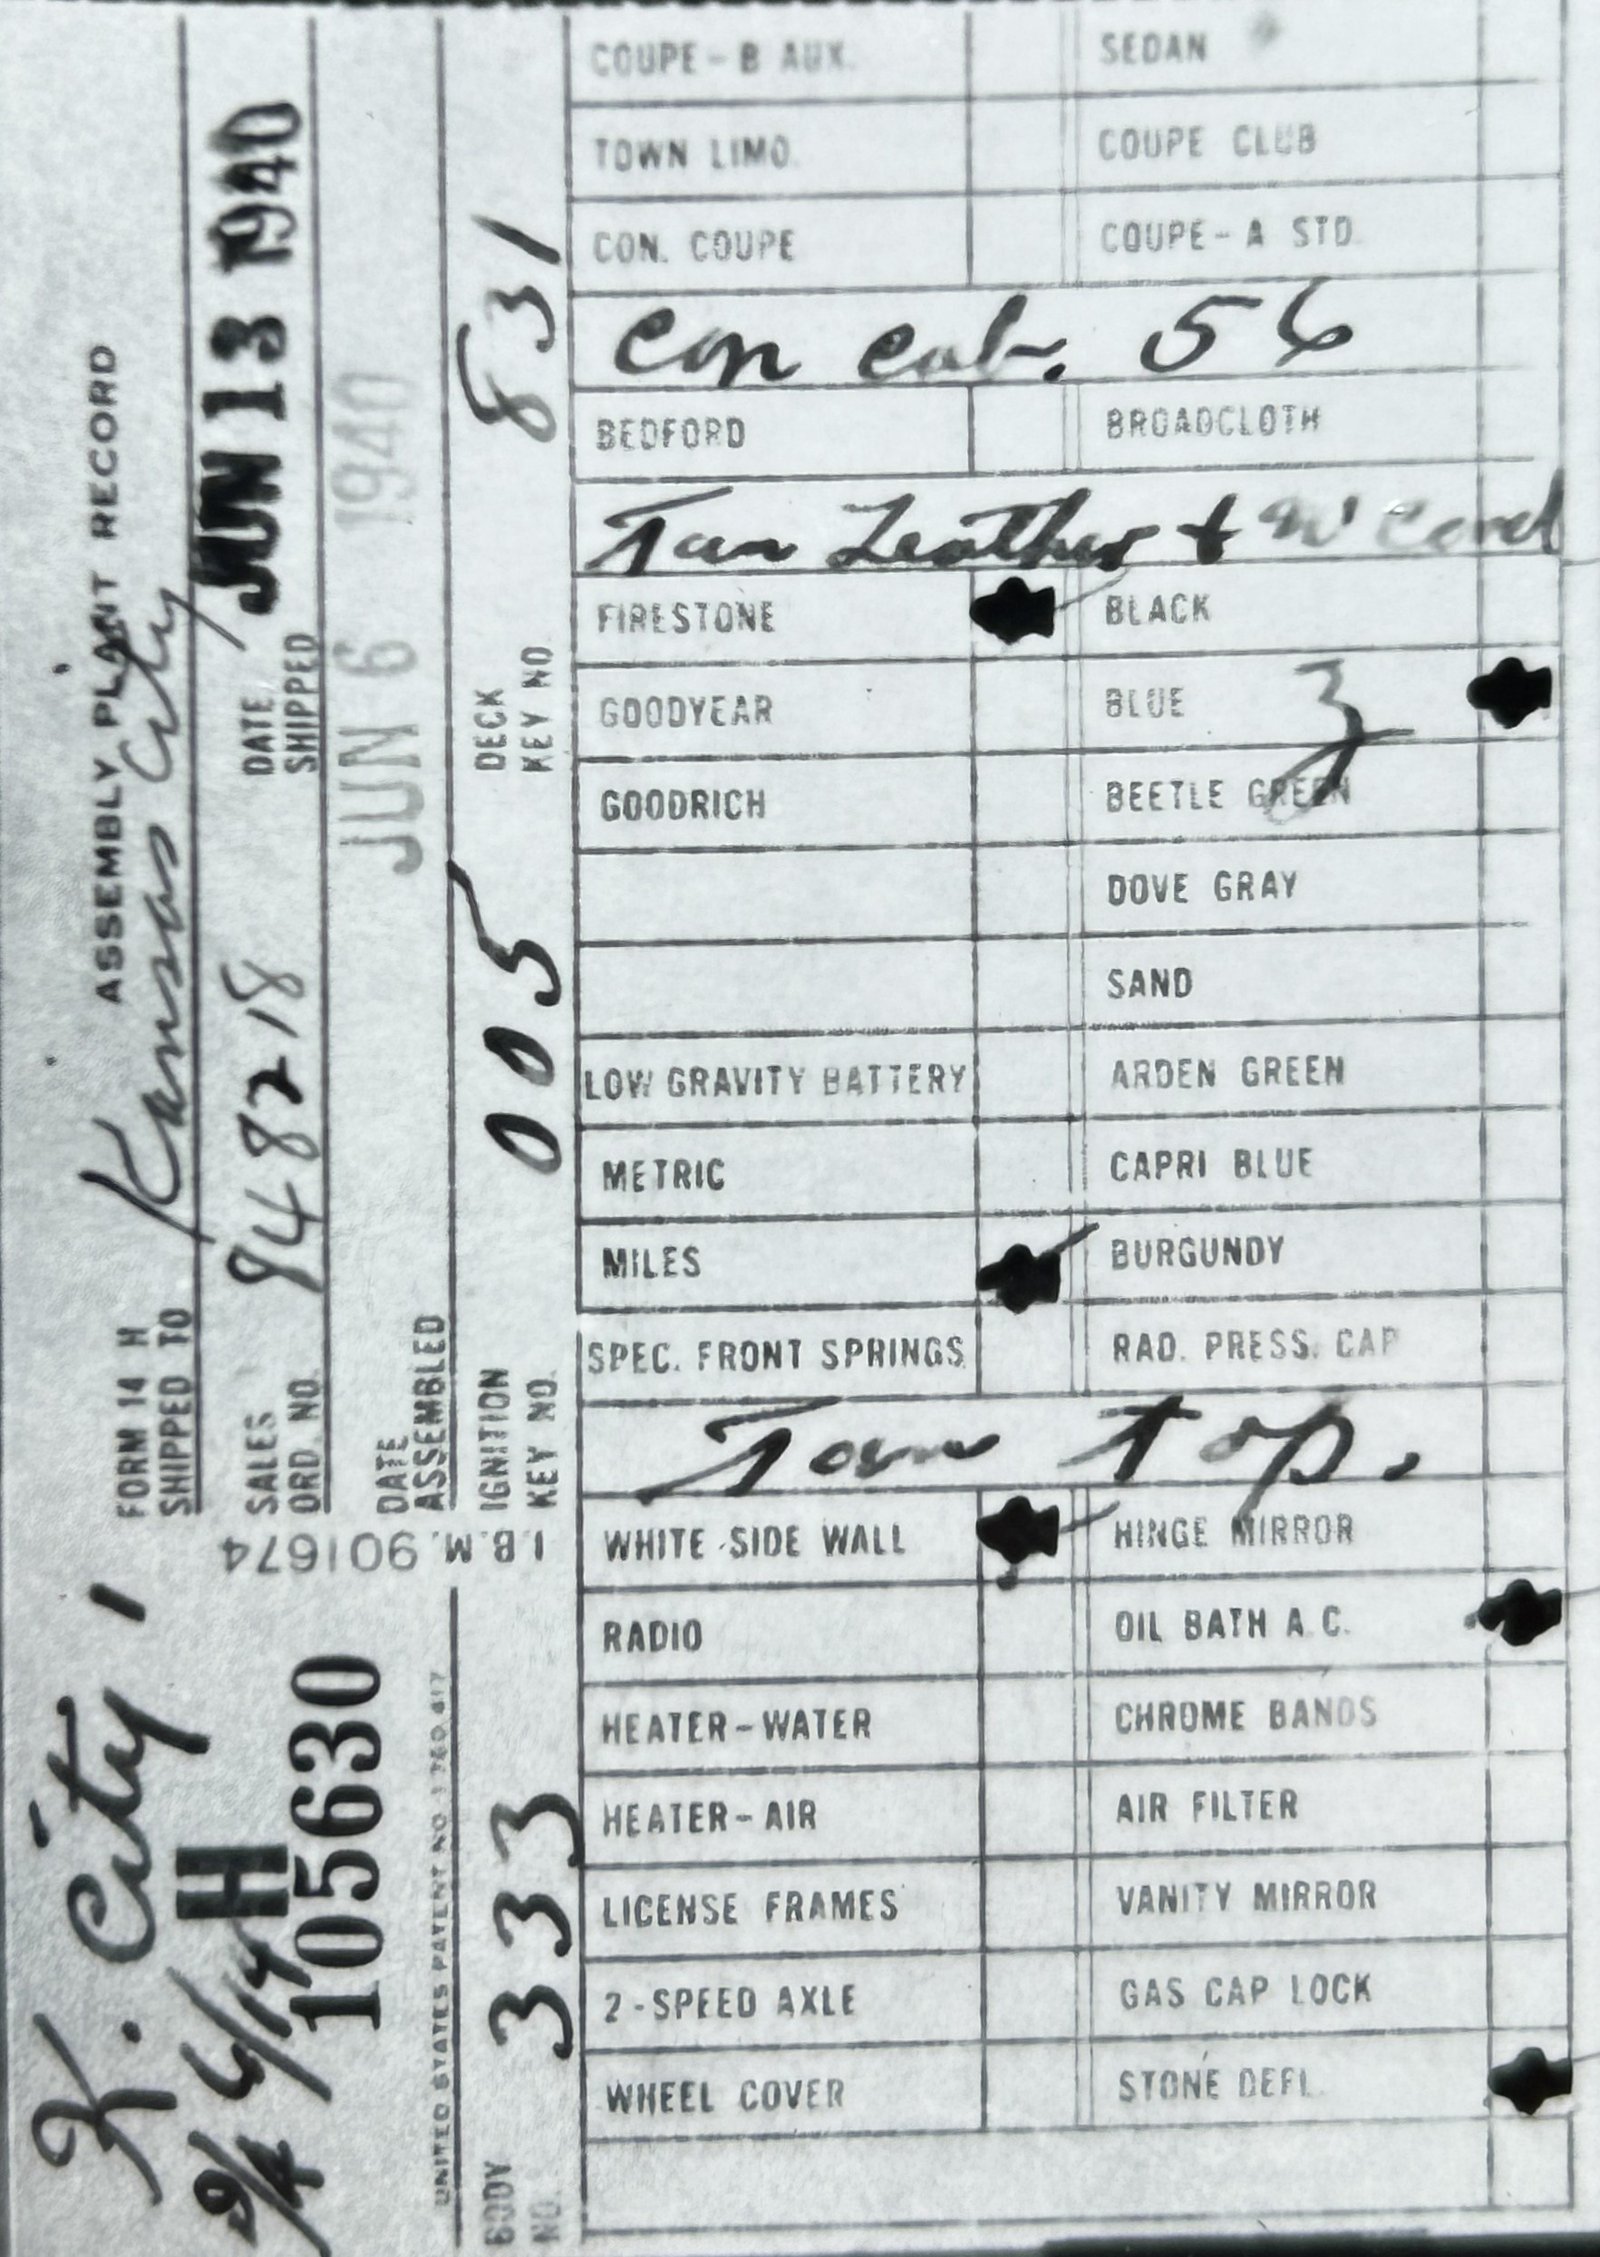 FORM 14 H ASSEMBLY PLANT RECORD
SHIPPED TO Kansas City
SALES ORD. NO. 948218
DATE SHIPPED JUN 13 1940
DATE ASSEMBLED JUN 6 1940
IGNITION KEY NO. 005
DECK KEY NO 831
K. City
6/14
H
105630
I.B.M. 901674
UNITED STATES PATENT NO
BODY NO. 333
COUPE - B AUX. SEDAN
TOWN LIMO. COUPE CLUB
CON. COUPE COUPE - A STD.
Con Cab. 56
BEDFORD BROADCLOTH
Tan Leather + W Cord
FIRESTONE BLACK
GOODYEAR BLUE 3
GOODRICH BEETLE GREEN
DOVE GRAY
SAND
LOW GRAVITY BATTERY ARDEN GREEN
METRIC CAPRI BLUE
MILES BURGUNDY
SPEC. FRONT SPRINGS RAD. PRESS. CAP
Tan top.
WHITE SIDE WALL HINGE MIRROR
RADIO OIL BATH A.C.
HEATER - WATER CHROME BANDS
HEATER - AIR AIR FILTER
LICENSE FRAMES VANITY MIRROR
2 - SPEED AXLE GAS CAP LOCK
WHEEL COVER STONE DEFL.